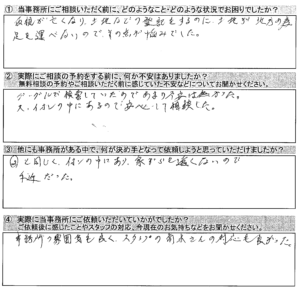 ① 当事務所にご相談いただく前に、どのようなこと・どのような状況でお困りでしたか？
父親が亡くなり、土地などの登記をするのに、土地が地方の為
足を運べないので、その点が悩みでした。
② 実際にご相談の予約をする前に、何か不安はありましたか？
無料相談の予約やご相談いただく前に感じていた不安などについてお聞かせください。
グーグルで検索していたのであまり不安は無かった。
又、イオンの中にあるので安心して相談した。
③ 他にも事務所がある中で、何が決め手となって依頼しようと思っていただけましたか？
②と同じく、イオンの中にあり、家からも遠くないので
手近だった。
④ 実際に当事務所にご依頼いただいていかがでしたか？
ご依頼後に感じたことやスタッフの対応、今現在のお気持ちなどをお聞かせください。
事務所の雰囲気も良く、スタッフの
さんの対応も良かった。